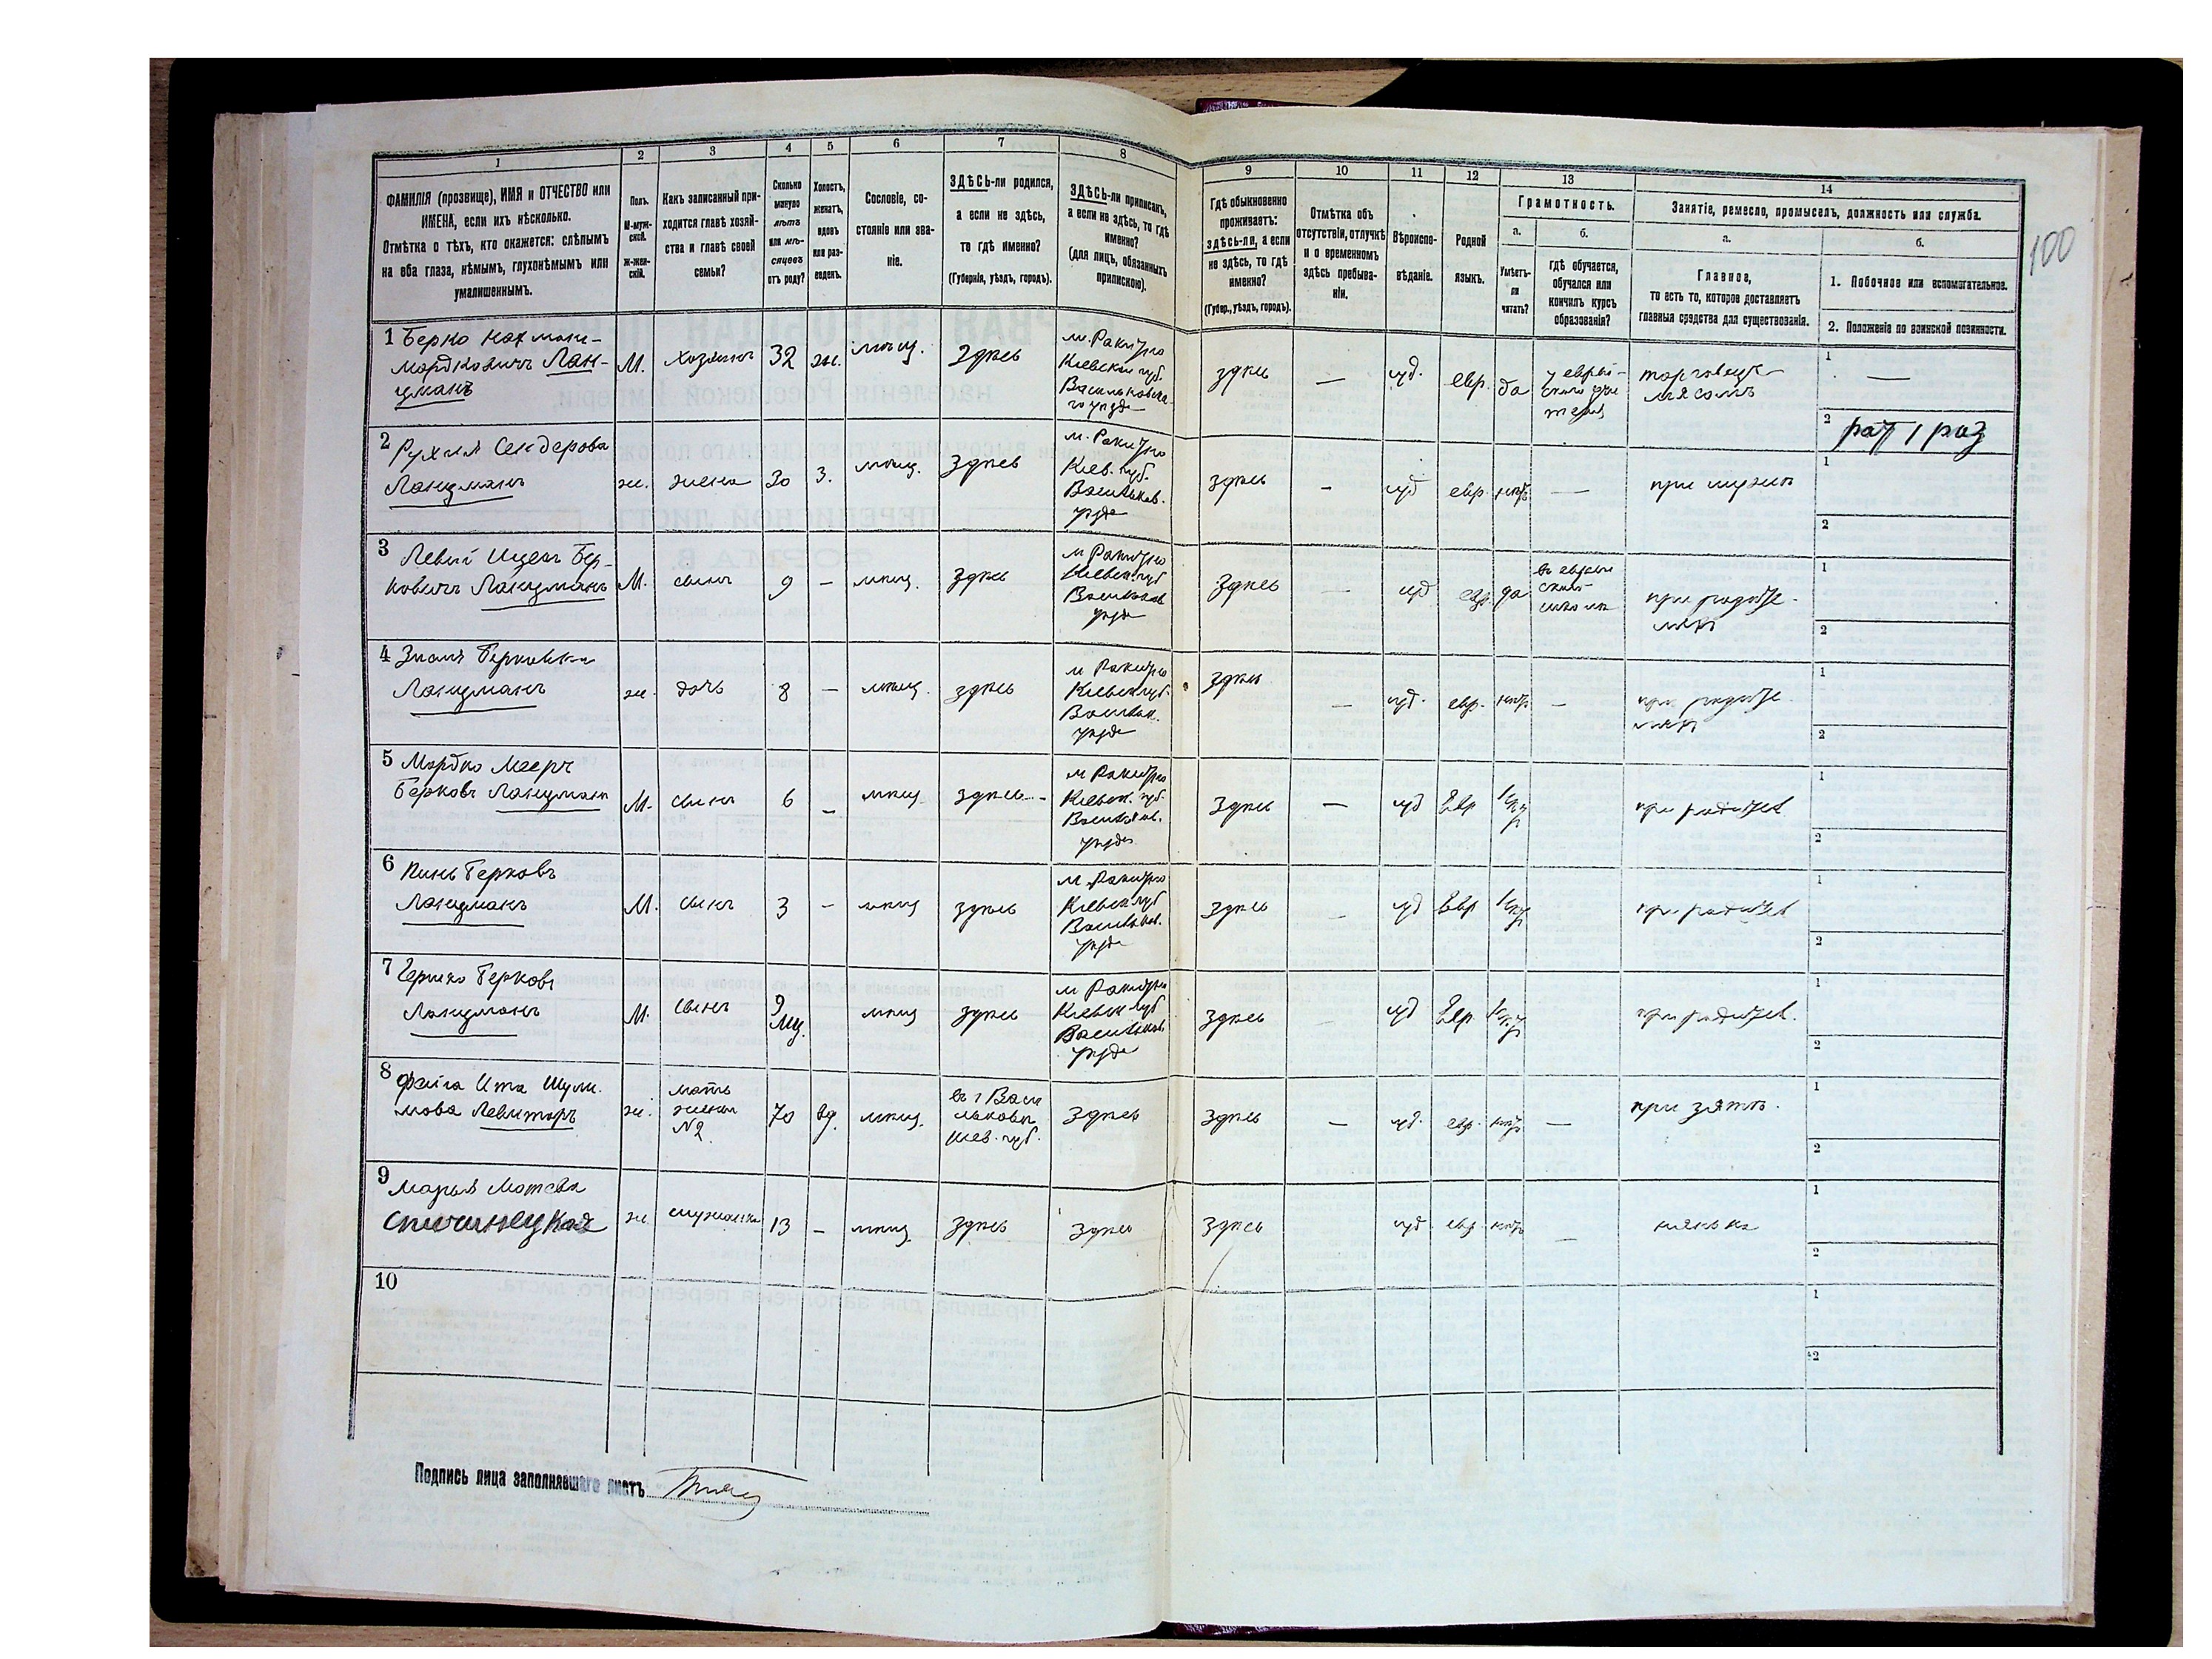 100
1
2
3
4
5
6
7
8
9
10
11
12
13
14
ФАМИЛІЯ (прозвище), ИМЯ и ОТЧЕСТВО или
ИМЕНА, если ихъ нѣсколько.
Отмѣтка о тѣхъ, кто окажется: слѣпымъ
на оба глаза, нѣмымъ, глухонѣмымъ или
умалишеннымъ.
Полъ.
М-муж-
ской.
Ж-жен-
скій.
Какъ записанный при-
ходится главѣ хозяй-
ства и главѣ своей
семьи?
Сколько
минуло
лѣтъ
или мѣ-
сяцевъ
отъ роду?
Холостъ,
женатъ,
вдовъ
или раз-
веденъ.
Сословіе, со-
стояніе или зва-
ніе.
ЗДѢСЬ-ли родился,
а если не здѣсь,
то гдѣ именно?
(Губернія, уѣздъ, городъ).
ЗДѢСЬ-ли приписанъ,
а если не здѣсь, то гдѣ
именно?
(для лицъ, обязанныхъ
припискою).
Гдѣ обыкновенно
проживаетъ:
здѣсь-ли, а если
не здѣсь, то гдѣ
именно?
(Губер., уѣздъ, городъ).
Отмѣтка объ
отсутствіи, отлучкѣ
и о временномъ
здѣсь пребыва-
ніи.
Вѣроиспо-
вѣданіе.
Родной
языкъ.
Грамотность.
а.
Умѣетъ-
ли
читать?
б.
гдѣ обучается,
обучался или
кончилъ курсъ
образованія?
Занятіе, ремесло, промыселъ, должность или служба.
а.
Главное,
то есть то, которое доставляетъ
главныя средства для существованія.
б.
1. Побочное или вспомогательное.
2. Положеніе по воинской повинности.
1 Берко Нахманъ-
Мордковичъ Лан-
цманъ
М.
хозяинъ
32
жн.
мѣщ.
здѣсь
м. Ракитно
Кіевской губ.
Васильковска-
го уѣзда
здѣсь
—
іуд.
евр.
да
у еврей-
скаго учи
теля
торговец-
мясомъ
1 —
2 рат 1 раз
2 Рухля Сендерова
Ланцманъ
ж.
жена
30
з.
мѣщ.
здѣсь
м. Ракитно
Кіев. губ.
Васильков.
уѣзда
здѣсь
-
іуд
евр.
нѣтъ
—
при мужѣ
1
2
3 Левий Ицекъ Бер-
ковичъ Ланцманъ
М.
сынъ
9
-
мѣщ.
здѣсь
м Ракитно
Кіевск. губ
Васильков
уѣзда
здѣсь
—
іуд
евр.
да
въ еврей
ской
школѣ
при родите-
ляхъ
1
2
4
Берковна
Ланцманъ
ж.
дочь
8
—
мѣщ.
здѣсь
м Ракитно
Кіевск губ.
Васильк.
уѣзда
здѣсь
—
іуд.
евр.
нѣтъ
—
при родите-
ляхъ
1
2
5 Мордко Мееръ
Берковъ Ланцманъ
М.
сынъ
6
-
мѣщ
здѣсь -
м Ракитно
Кіевск. губ.
Васильков.
уѣзда
здѣсь
—
іуд
Евр
нѣт
при родител
1
2
6 Пинь Берковъ
Ланцманъ
М.
сынъ
3
-
мѣщ
здѣсь
м. Ракитно
Кіевск губ
Васильков.
уѣзда
здѣсь
-
іуд
Евр
нѣт
при родител
1
2
7 Гершко Берковъ
Ланцманъ
М.
сынъ
9
мц.
мѣщ
здѣсь
м Ракитно
Кіевск губ
Васильков
уѣзда
здѣсь
іуд
Евр
нѣт
при родител.
1
2
8 Фейга Ита Шули-
мова Левитаръ
ж.
мать
жены
№2.
70
вд.
мѣщ.
въ г Васи
льковѣ
Кіев. губ.
здѣсь
здѣсь
—
іуд.
евр.
нѣтъ
—
при зятѣ.
1
2
9
Марья
Спичинецкая
ж
служанка
13
-
мѣщ.
здѣсь
здѣсь
здѣсь
іуд
евр
нѣтъ
—
нянька
1
2
10
1
2
Подпись лица заполнявшаго листъ